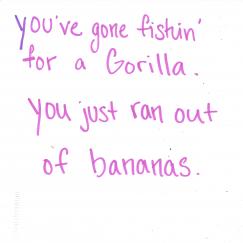 you've gone fishin'
for a Gorilla.
you just ran out
of bananas.